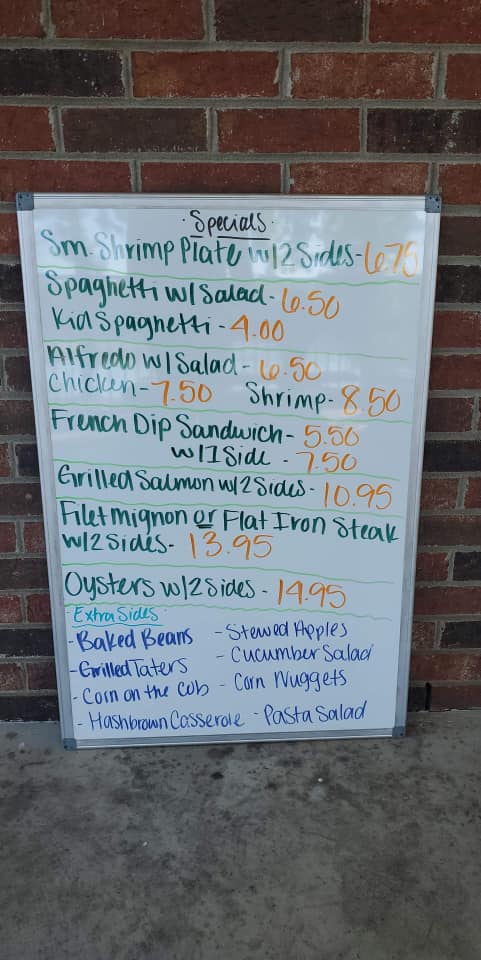 Specials
Sm. Shrimp Plate w/2 Sides-6.75
Spaghetti w/Salad- 6.50
Kid Spaghetti - 4.00
Alfredo w/Salad - 6.50
Chicken - 7.50 Shrimp- 8.50
French Dip Sandwich- 5.50
w/1 Side - 7.50
Grilled Salmon w/2 Sides- 10.95
Filet mignon or Flat Iron Steak
w/2 Sides- 13.95
Oysters w/2 Sides - 14.95
Extra Sides
- Baked Beans - Stewed Apples
- Grilled Taters - Cucumber Salad
- Corn on the Cob - Corn Nuggets
- Hashbrown Casserole - Pasta Salad